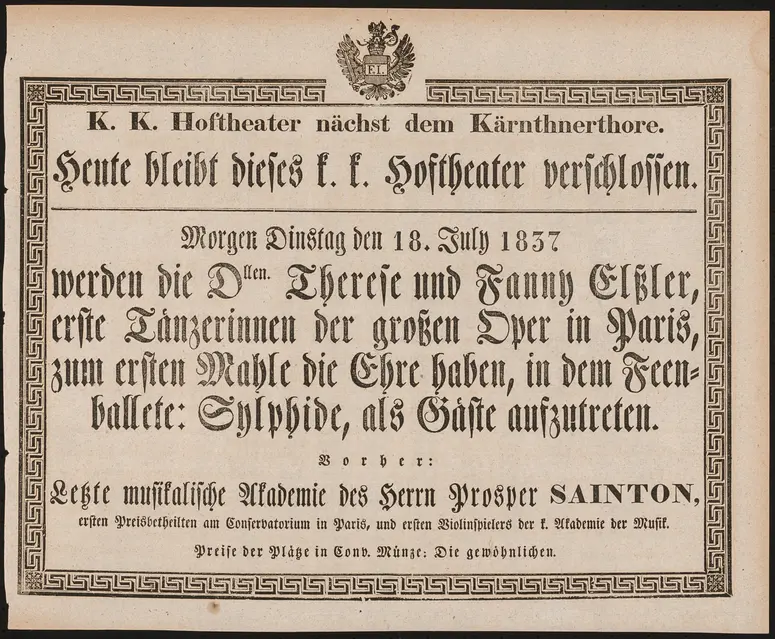 F.I.
K. K. Hoftheater nächst dem Kärnthnerthore.
Heute bleibt dieses k. k. Hoftheater verschlossen.
Morgen Dinstag den 18. July 1837
werden die Dllen. Therese und Fanny Elßler,
erste Tänzerinnen der großen Oper in Paris,
zum ersten Mahle die Ehre haben, in dem Feen-
ballete: Sylphide, als Gäste aufzutreten.
Vorher:
Letzte musikalische Akademie des Herrn Prosper SAINTON,
ersten Preisbetheilten am Conservatorium in Paris, und ersten Violinspielers der k. Akademie der Musik.
Preise der Plätze in Conv. Münze: Die gewöhnlichen.